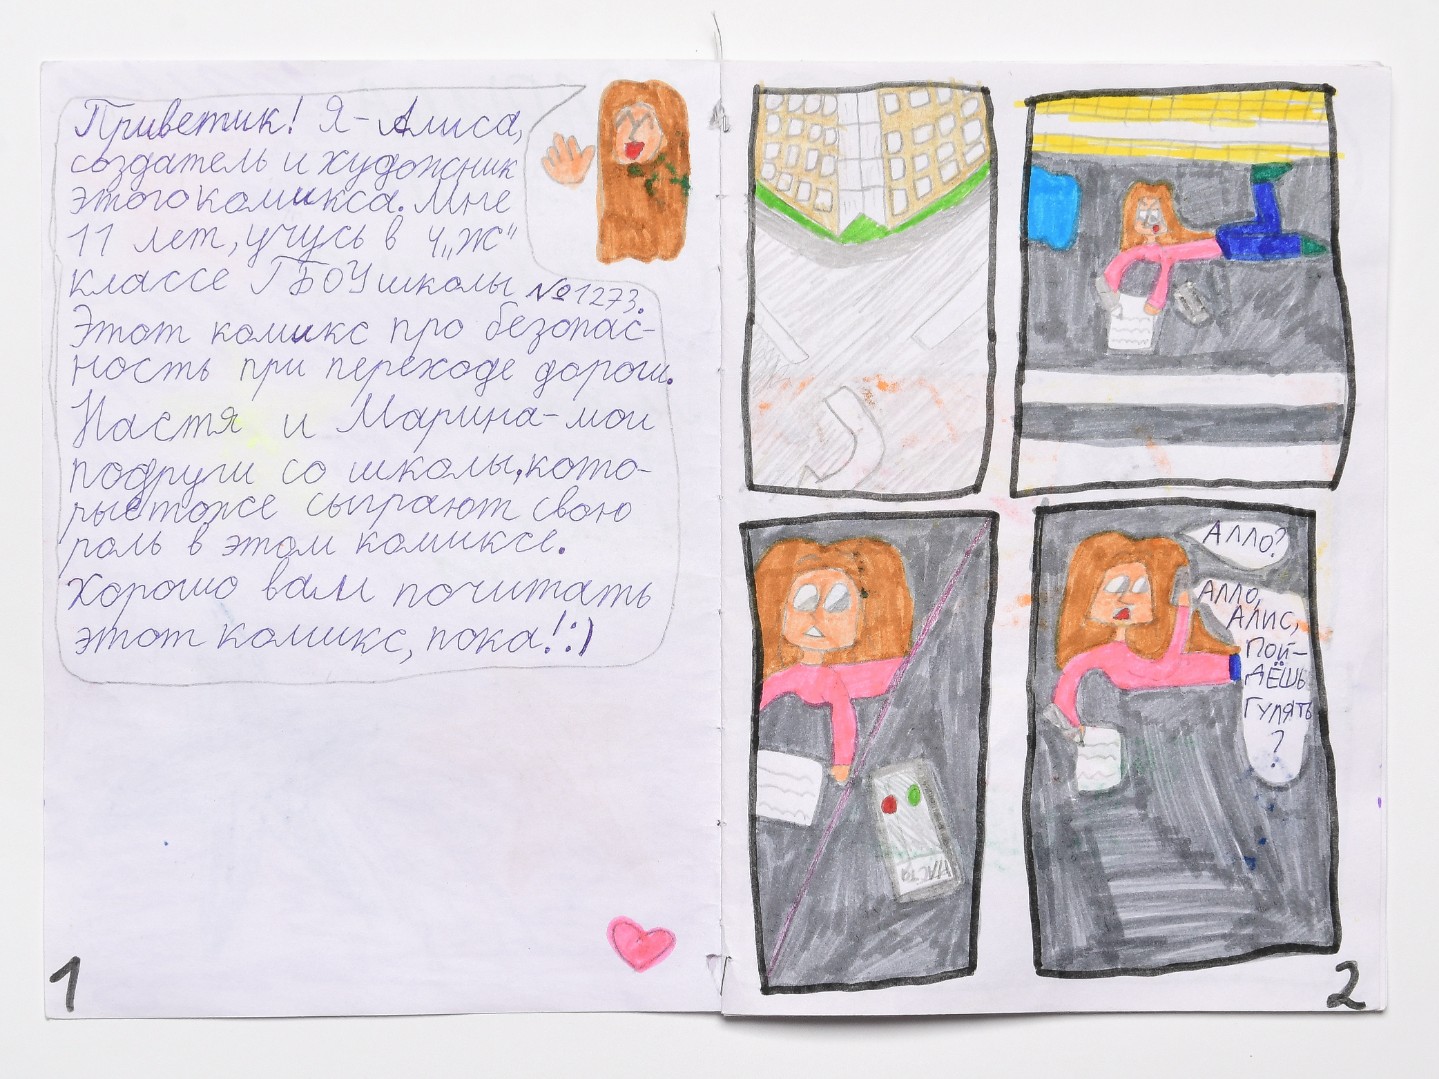 Приветик! Я - Алиса,
создатель и художник
этого комикса. Мне
11 лет, учусь в 4 „Ж“
классе ГБОУ школы №1273.
Этот комикс про безопас-
ность при переходе дороги.
Настя и Марина - мои
подруги со школы, кото-
рые тоже сыграют свою
роль в этом комиксе.
Хорошо вам почитать
этот комикс, пока! :)
1
НАСТЯ
АЛЛО?
АЛЛО,
АЛИС,
ПОЙ-
ДЁШЬ
ГУЛЯТЬ
?
2